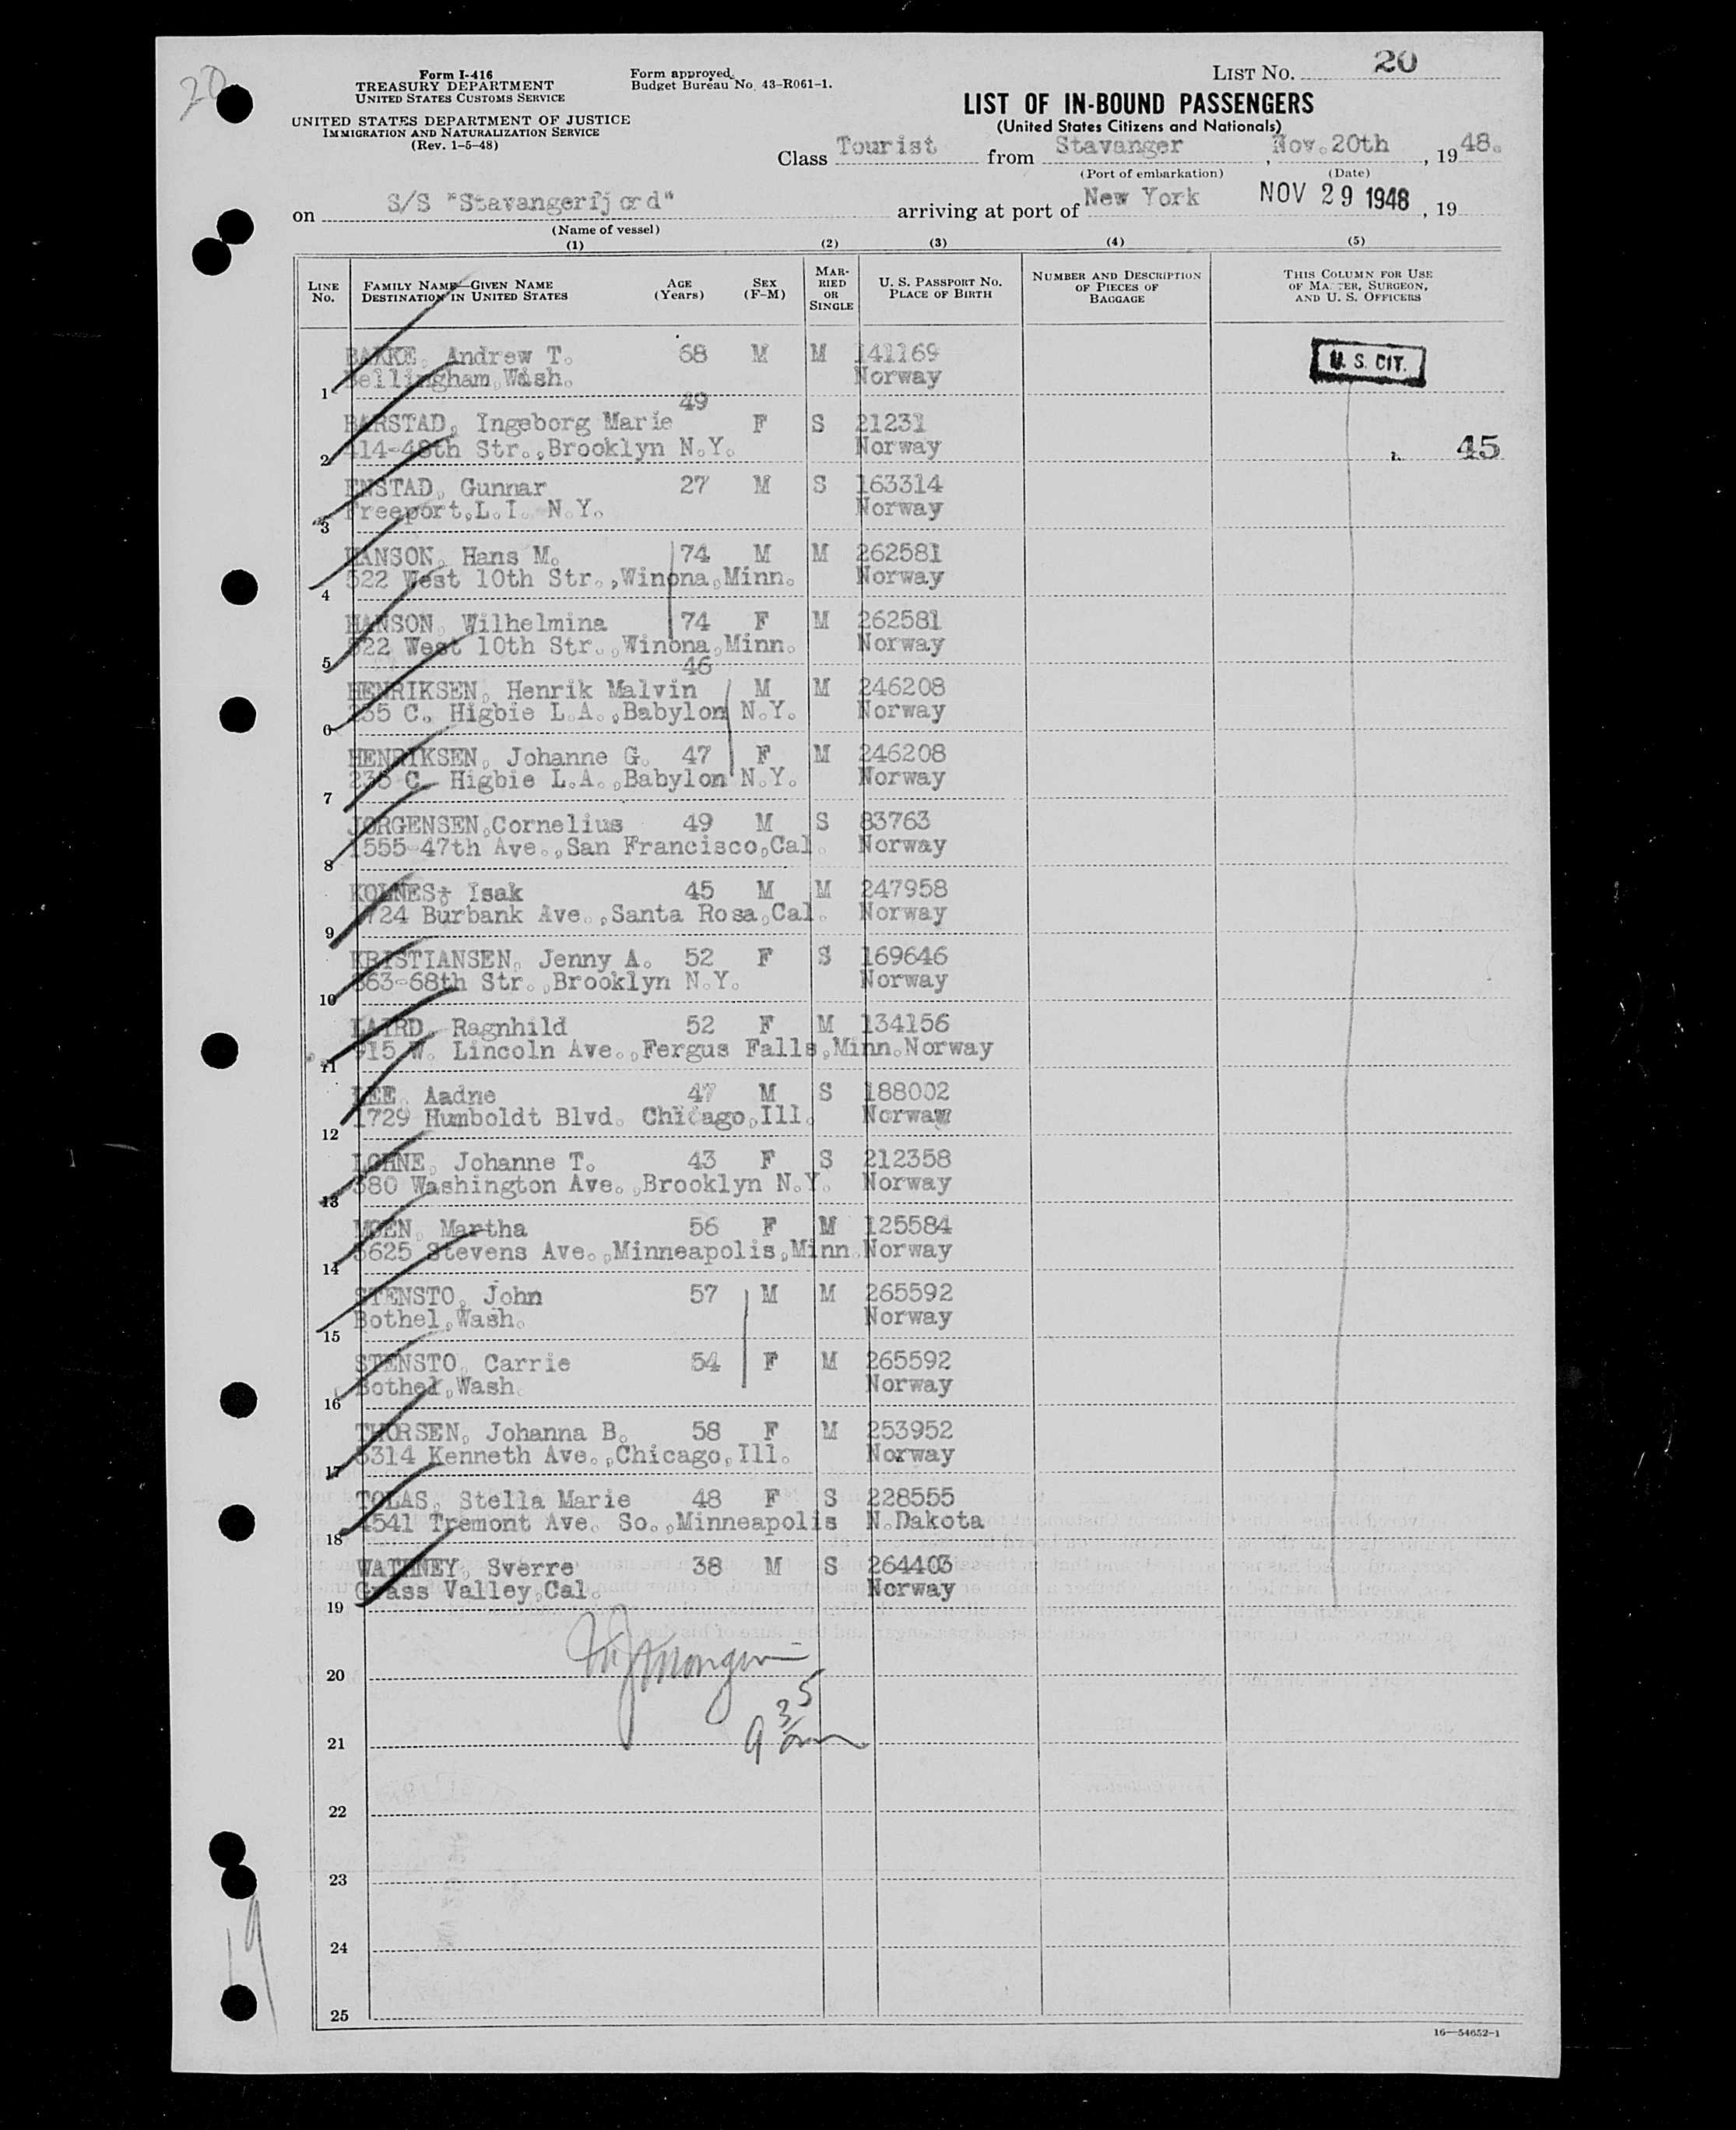 20
Form I-416
TREASURY DEPARTMENT
UNITED STATES CUSTOMS SERVICE
UNITED STATES DEPARTMENT OF JUSTICE
IMMIGRATION AND NATURALIZATION SERVICE
(Rev. 1-5-48)
Form approved.
Budget Bureau No. 43-R061-1.
LIST NO. 20
LIST OF IN-BOUND PASSENGERS
(United States Citizens and Nationals)
Class Tourist from Stavanger, Nov. 20th, 1948.
(Port of embarkation) (Date)
on S/S "Stavangerfjord" arriving at port of New York NOV 29 1948, 19
(Name of vessel)
(1) (2) (3) (4) (5)
LINE No. FAMILY NAME—GIVEN NAME DESTINATION IN UNITED STATES AGE (Years) SEX (F-M) MARRIED OR SINGLE U. S. PASSPORT NO. PLACE OF BIRTH NUMBER AND DESCRIPTION OF PIECES OF BAGGAGE THIS COLUMN FOR USE OF MASTER, SURGEON, AND U. S. OFFICERS
BAKKE, Andrew T. 68 M M 141169 U. S. CIT.
1 Bellingham, Wash. Norway
49
BARSTAD, Ingeborg Marie F S 21231
2 414-48th Str., Brooklyn N.Y. Norway 45
ENSTAD, Gunnar 27 M S 163314
3 Freeport, L.I. N.Y. Norway
HANSON, Hans M. 74 M M 262581
4 522 West 10th Str., Winona, Minn. Norway
HANSON, Wilhelmina 74 F M 262581
5 522 West 10th Str., Winona, Minn. Norway
46
HENRIKSEN, Henrik Malvin M M 246208
6 235 C. Higbie L.A., Babylon N.Y. Norway
HENRIKSEN, Johanne G. 47 F M 246208
7 235 C. Higbie L.A., Babylon N.Y. Norway
JORGENSEN, Cornelius 49 M S 83763
8 1555-47th Ave., San Francisco, Cal. Norway
KOLNES, Isak 45 M M 247958
9 1724 Burbank Ave., Santa Rosa, Cal. Norway
KRISTIANSEN, Jenny A. 52 F S 169646
10 863-68th Str., Brooklyn N.Y. Norway
LAIRD, Ragnhild 52 F M 134156
11 915 W. Lincoln Ave., Fergus Falls, Minn. Norway
LEE, Aadne 47 M S 188002
12 1729 Humboldt Blvd. Chicago, Ill. Norway
LOHNE, Johanne T. 43 F S 212358
13 380 Washington Ave., Brooklyn N.Y. Norway
MOEN, Martha 56 F M 125584
14 5625 Stevens Ave., Minneapolis, Minn. Norway
STENSTO, John 57 M M 265592
15 Bothel, Wash. Norway
STENSTO, Carrie 54 F M 265592
16 Bothel, Wash. Norway
THORSEN, Johanna B. 58 F M 253952
17 5314 Kenneth Ave., Chicago, Ill. Norway
TOLAS, Stella Marie 48 F S 228555
18 4541 Tremont Ave. So., Minneapolis N.Dakota
WATHNEY, Sverre 38 M S 264403
19 Grass Valley, Cal. Norway
20
9 35
21
22
23
24
19
25
16—54652-1